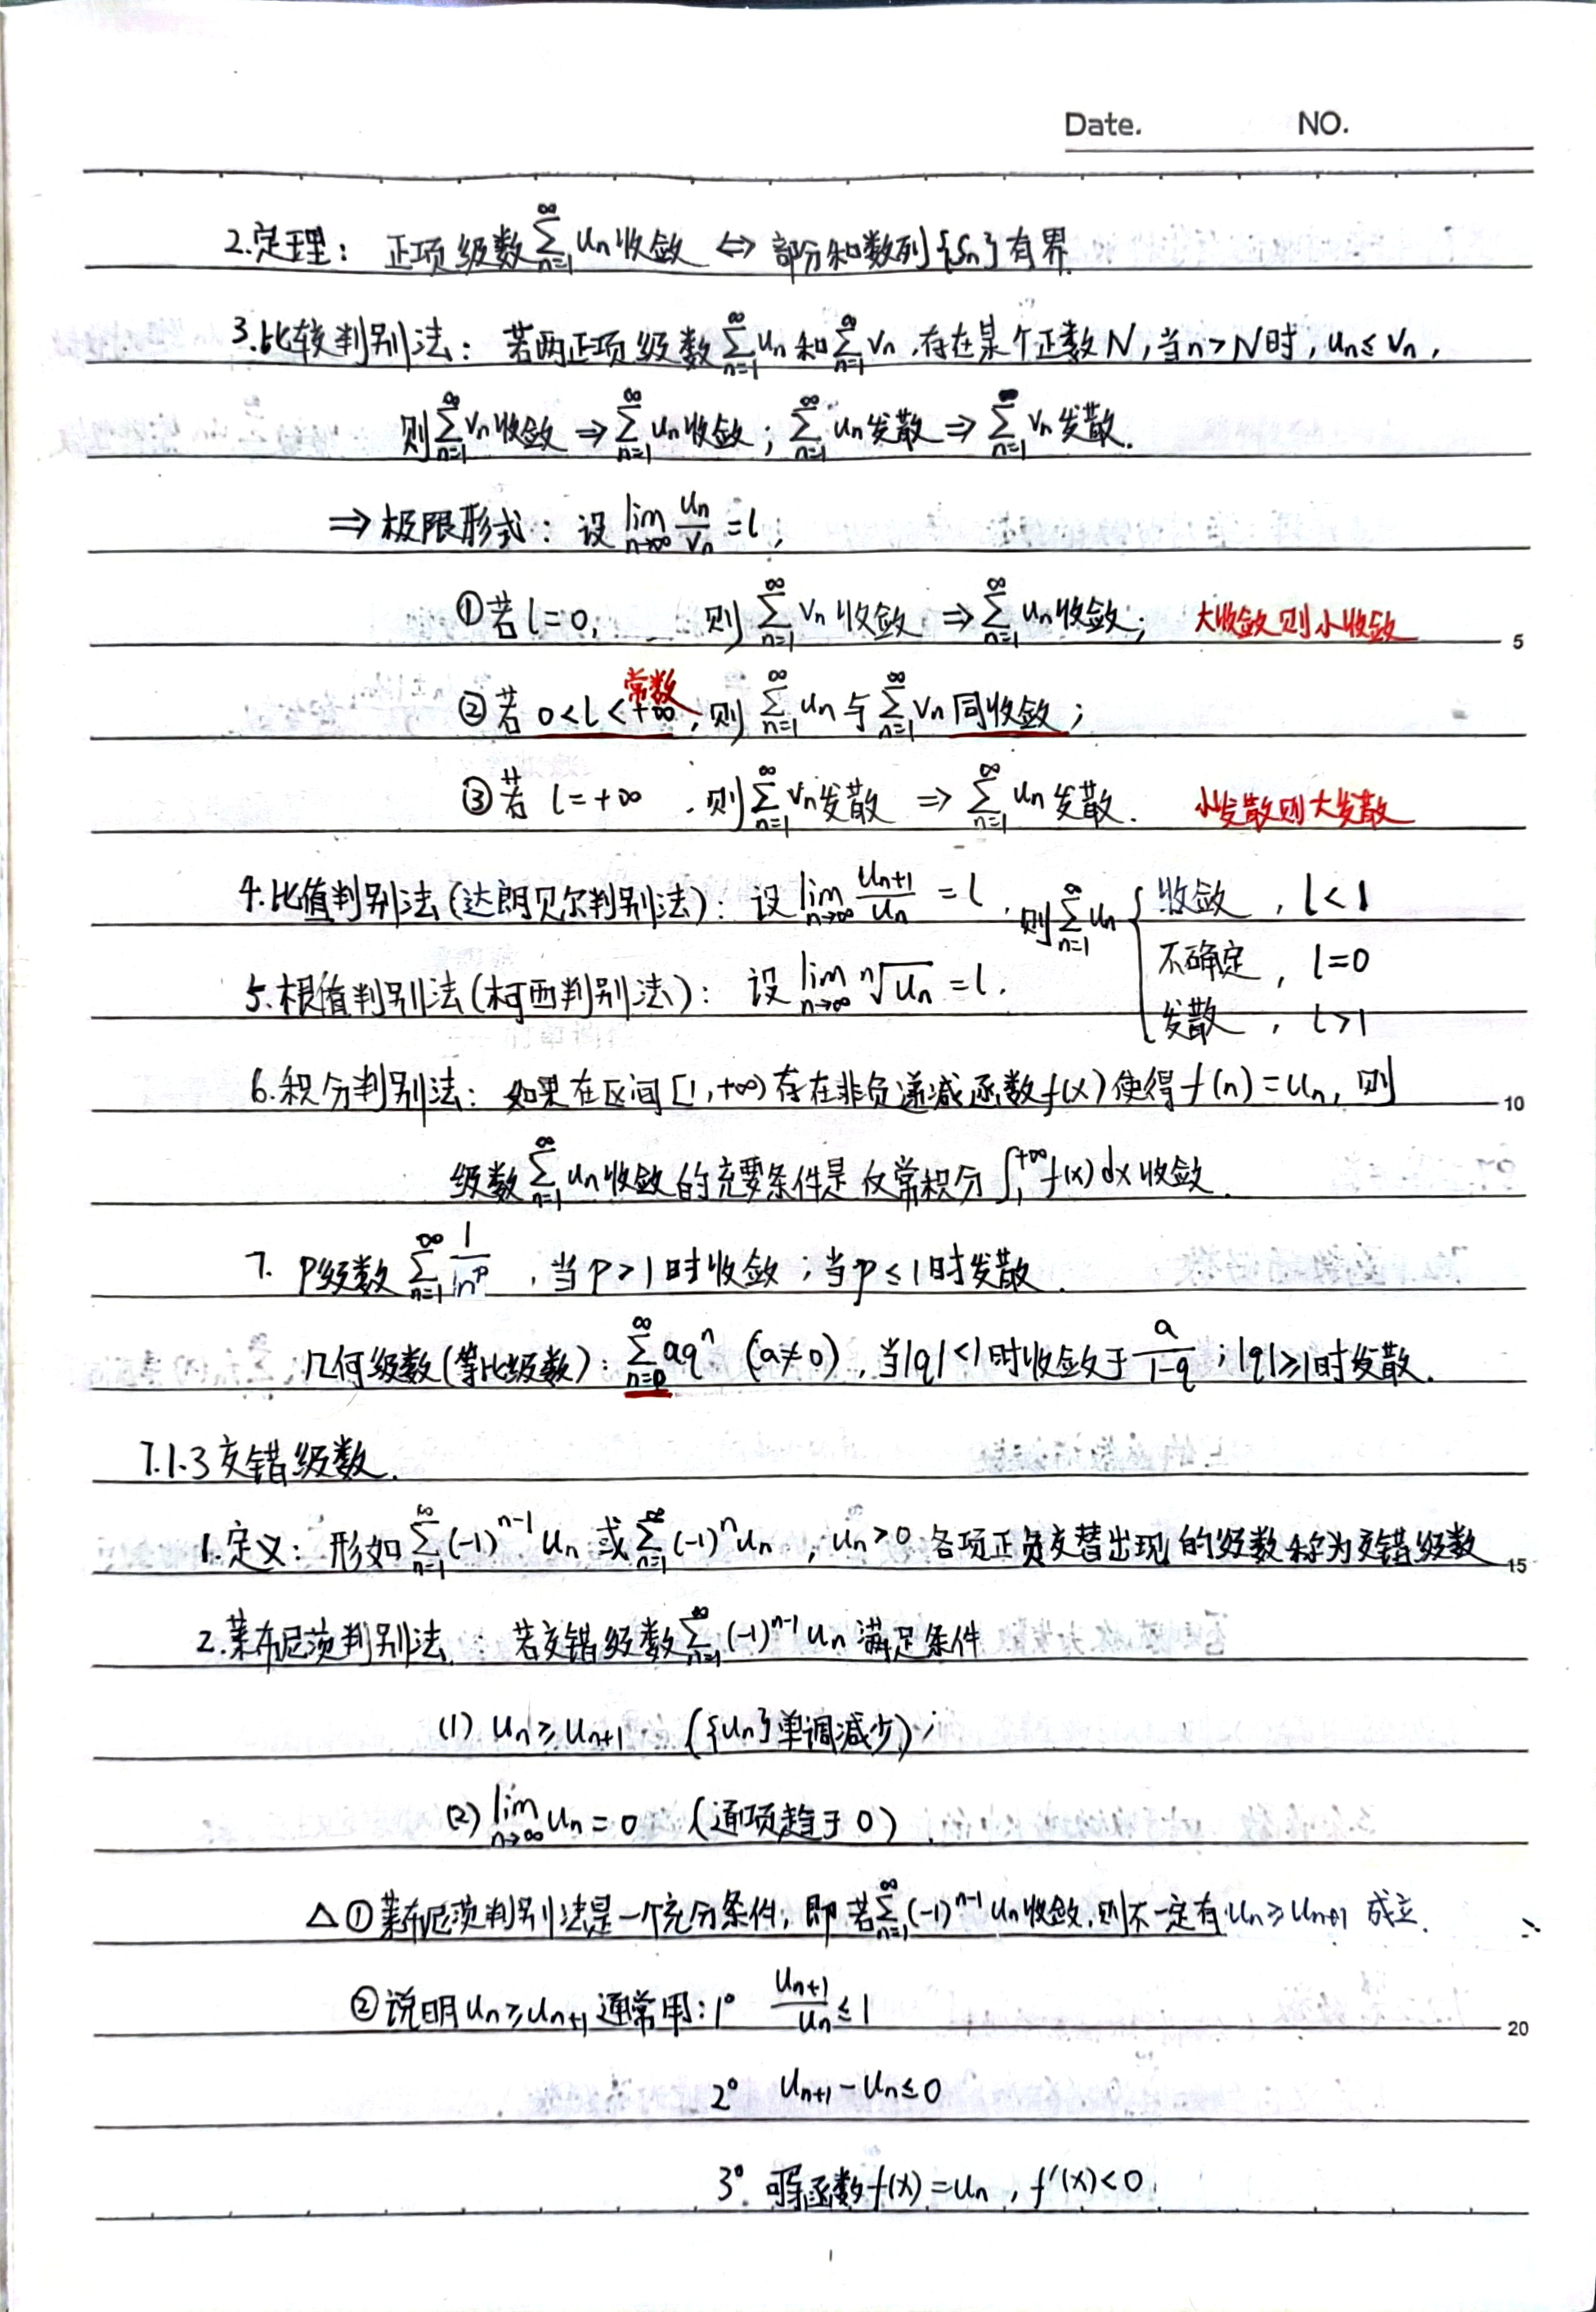 Date. NO.
2.定理: 正项级数∑_{n=1}^{∞} u_n 收敛 ⇔ 部分和数列{S_n}有界.
3.比较判别法: 若两正项级数∑_{n=1}^{∞} u_n 和∑_{n=1}^{∞} v_n ,存在某个正数N,当n>N时, u_n≤v_n ,
则∑_{n=1}^{∞} v_n 收敛 ⇒ ∑_{n=1}^{∞} u_n 收敛; ∑_{n=1}^{∞} u_n 发散 ⇒ ∑_{n=1}^{∞} v_n 发散.
⇒ 极限形式: 设 lim_{n→∞} u_n/v_n = l ,
①若 l=0, 则 ∑_{n=1}^{∞} v_n 收敛 ⇒ ∑_{n=1}^{∞} u_n 收敛; 大收敛则小收敛 5
常数
②若 0<l<+∞,则 ∑_{n=1}^{∞} u_n 与 ∑_{n=1}^{∞} v_n 同收敛;
③若 l=+∞ ,则∑_{n=1}^{∞} v_n 发散 ⇒ ∑_{n=1}^{∞} u_n 发散. 小发散则大发散
4.比值判别法(达朗贝尔判别法): 设 lim_{n→∞} u_{n+1}/u_n = l ,则∑_{n=1}^{∞} u_n { 收敛 , l<1
不确定 , l=0
5.根值判别法(柯西判别法): 设 lim_{n→∞} ⁿ√u_n = l .
发散 , l>1
6.积分判别法: 如果在区间[1,+∞)存在非负递减函数f(x)使得f(n)=u_n, 则 10
级数∑_{n=1}^{∞} u_n 收敛的充要条件是反常积分∫_1^{+∞} f(x)dx 收敛.
7. P级数∑_{n=1}^{∞} 1/n^p ,当p>1时收敛;当p≤1时发散.
几何级数(等比级数): ∑_{n=0}^{∞} aq^n (a≠0),当|q|<1时收敛于 a/(1-q) ;|q|≥1时发散.
7.1.3 交错级数.
1.定义: 形如∑_{n=1}^{∞} (-1)^{n-1} u_n 或∑_{n=1}^{∞} (-1)^n u_n , u_n>0 各项正负交替出现的级数称为交错级数 15
2.莱布尼茨判别法: 若交错级数∑_{n=1}^{∞} (-1)^{n-1} u_n 满足条件
(1) u_n≥u_{n+1} ({u_n}单调减少);
(2) lim_{n→∞} u_n = 0 (通项趋于0).
△①莱布尼茨判别法是一个充分条件, 即若∑_{n=1}^{∞} (-1)^{n-1} u_n 收敛,则不一定有 u_n≥u_{n+1} 成立.
②说明 u_n≥u_{n+1} 通常用: 1° u_{n+1}/u_n ≤ 1 20
2° u_{n+1}-u_n≤0
3° 可导函数f(x)=u_n , f'(x)<0.